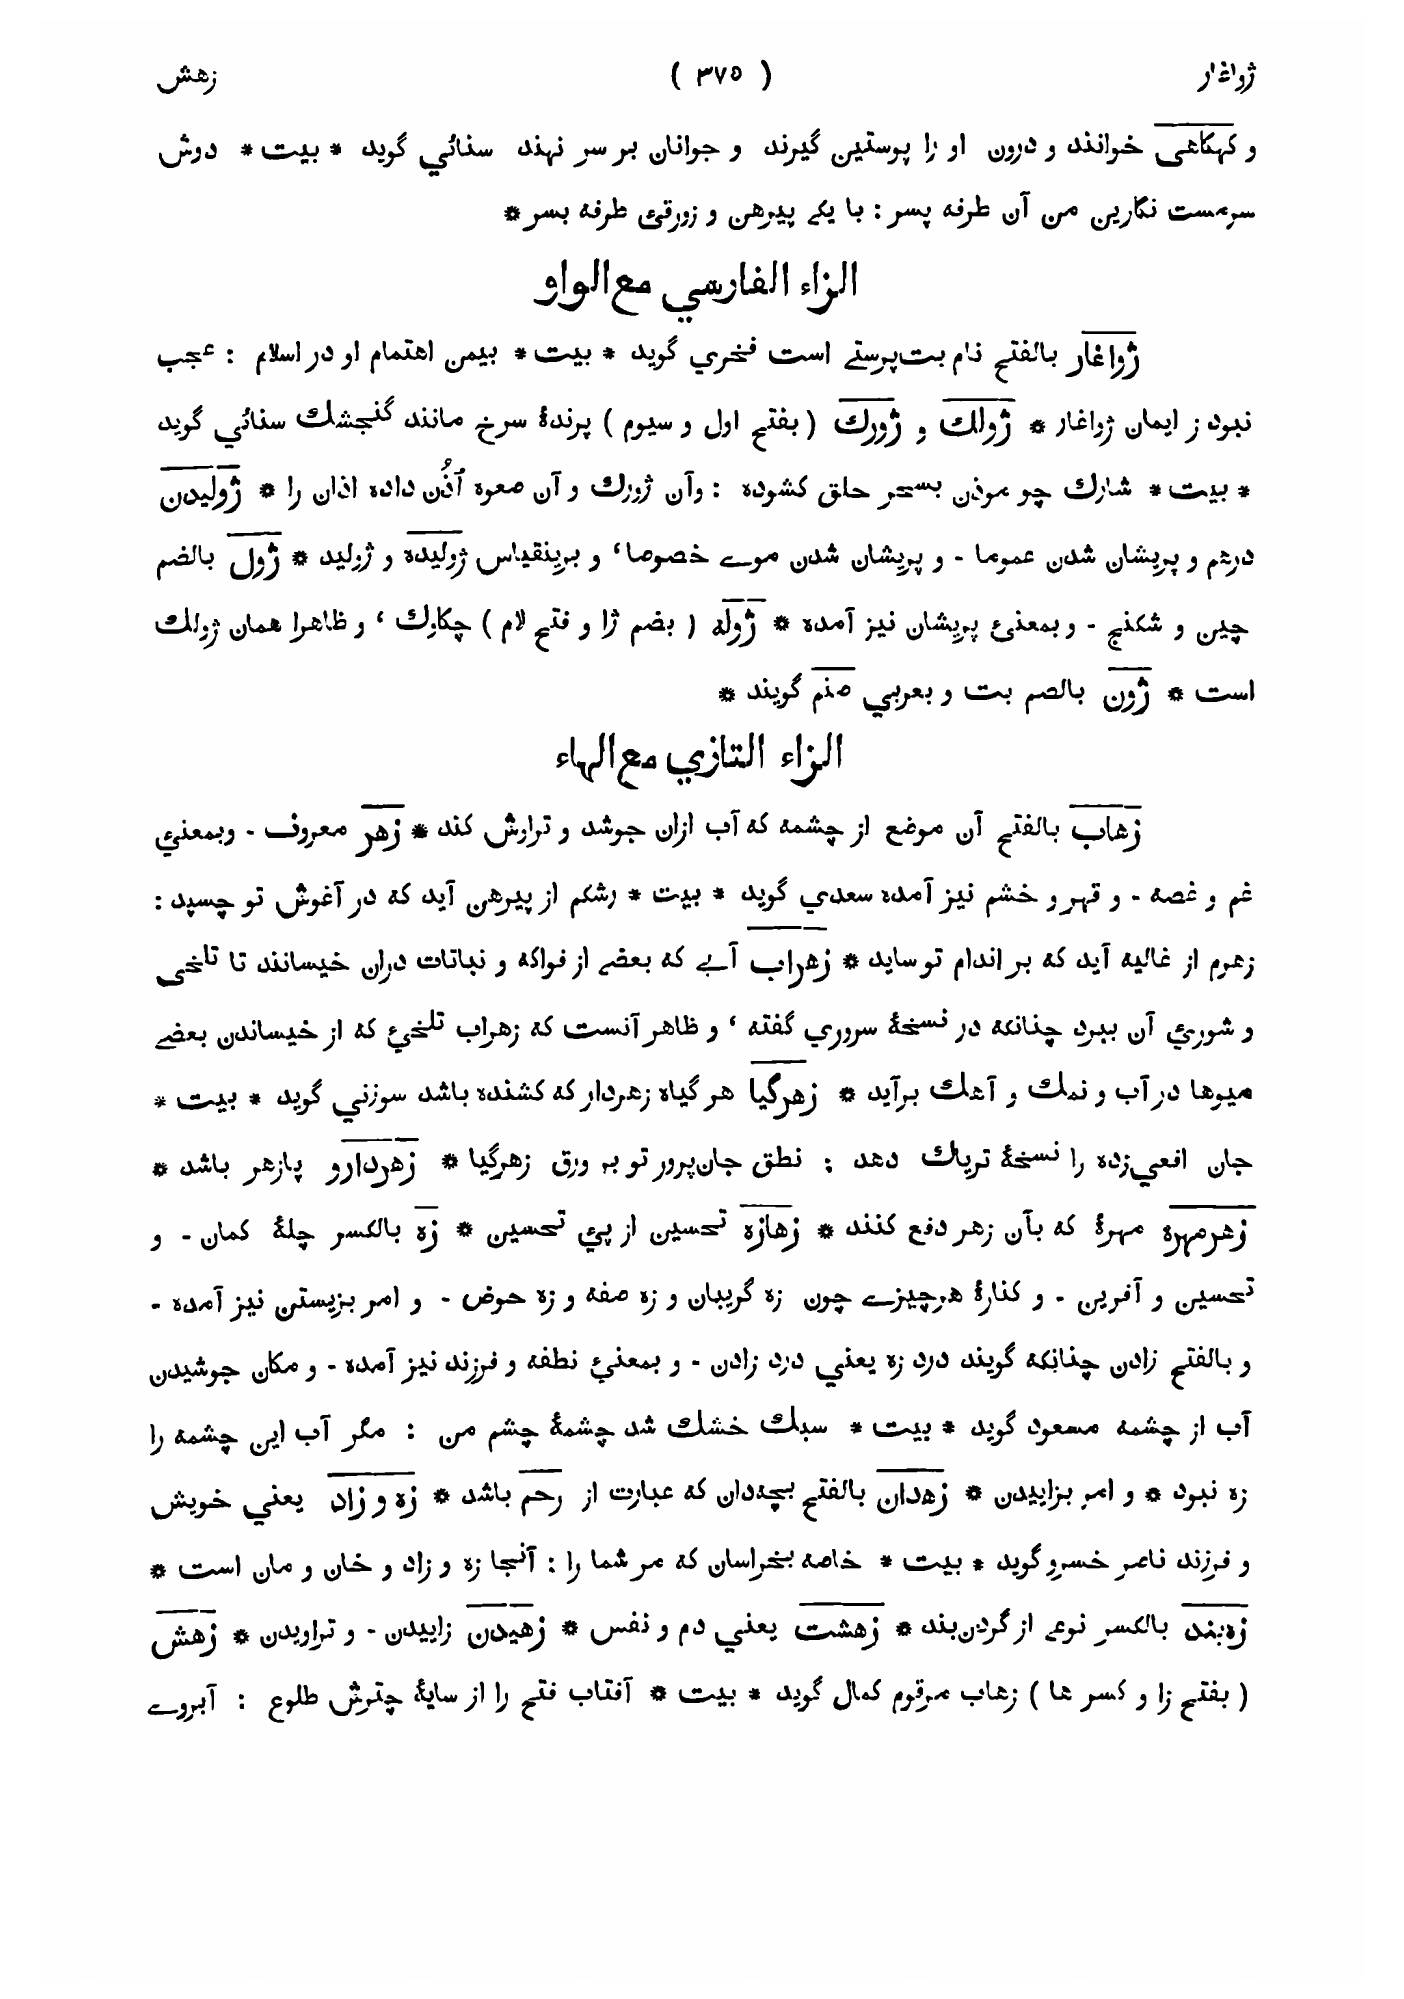 ژواغار ( ۳۷۵ ) زهش
و کهکاهی خوانند و درون او را پوستین گیرند و جوانان بر سر نهند سنائي گوید * بیت * دوش
سرمست نگارین من آن طرفه پسر : با یکے پیرهن و زورقئ طرفه بسر *
الزاء الفارسي مع الواو
ژواغار بالفتح نام بت‌پرستے است فخري گوید * بیت * بیمن اهتمام او در اسلام : عجب
نبود ز ایمان ژواغار * ژولك و ژورك ( بفتح اول و سیوم ) پرندهٔ سرخ مانند گنجشك سنائي گوید
* بیت * شارك چو موذن بسحر حلق کشوده : وآن ژورك و آن صعوه اَذُن داده اذان را * ژولیدن
درهم و پریشان شدن عموما - و پریشان شدن موے خصوصا ، و برینقیاس ژولیده و ژولید * ژول بالضم
چین و شکنج - و بمعنئ پریشان نیز آمده * ژوله ( بضم ژا و فتح لام ) چکاوك ، و ظاهرا همان ژولك
است * ژون بالضم بت و بعربي صنم گویند *
الزاء التازي مع الهاء
زهاب بالفتح آن موضع از چشمه که آب ازان جوشد و تراوش کند * زهر معروف - وبمعنئ
غم و غصه - و قهر و خشم نیز آمده سعدي گوید * بیت * رشکم از پیرهن آید که در آغوش تو چسپد :
زهرم از غالیه آید که بر اندام تو ساید * زهراب آبے که بعضے از فواکه و نباتات دران خیسانند تا تلخی
و شورئ آن ببرد چنانکه در نسخهٔ سروري گفته ، و ظاهر آنست که زهراب تلخئ که از خیساندن بعضے
میوها در آب و نمك و آهك برآید * زهرگیا هر گیاه زهردار که کشنده باشد سوزني گوید * بیت *
جان افعي‌زده را نسخهٔ تریاك دهد : نطق جان‌پرور تو بر ورق زهرگیا * زهردارو پازهر باشد *
زهرمهره مهرهٔ که بآن زهر دفع کنند * زهازه تحسین از پي تحسین * زه بالکسر چلهٔ کمان - و
تحسین و آفرین - و کنارهٔ هرچیزے چون زه گریبان و زه صفه و زه حوض - و امر بزیستن نیز آمده -
و بالفتح زادن چنانکه گویند درد زه یعني درد زادن - و بمعنئ نطفه و فرزند نیز آمده - و مکان جوشیدن
آب از چشمه مسعود گوید * بیت * سبك خشك شد چشمهٔ چشم من : مگر آب این چشمه را
زه نبود * و امر بزاییدن * زهدان بالفتح بچه‌دان که عبارت از رحم باشد * زه و زاد یعني خویش
و فرزند ناصر خسرو گوید * بیت * خاصه بخراسان که مر شما را : آنجا زه و زاد و خان و مان است *
زه‌بند بالکسر نوعے از گردن‌بند * زهشت یعني دم و نفس * زهیدن زاییدن - و تراویدن * زهش
( بفتح زا و کسر ها ) زهاب مرقوم کمال گوید * بیت * آفتاب فتح را از سایهٔ چترش طلوع : آبروے